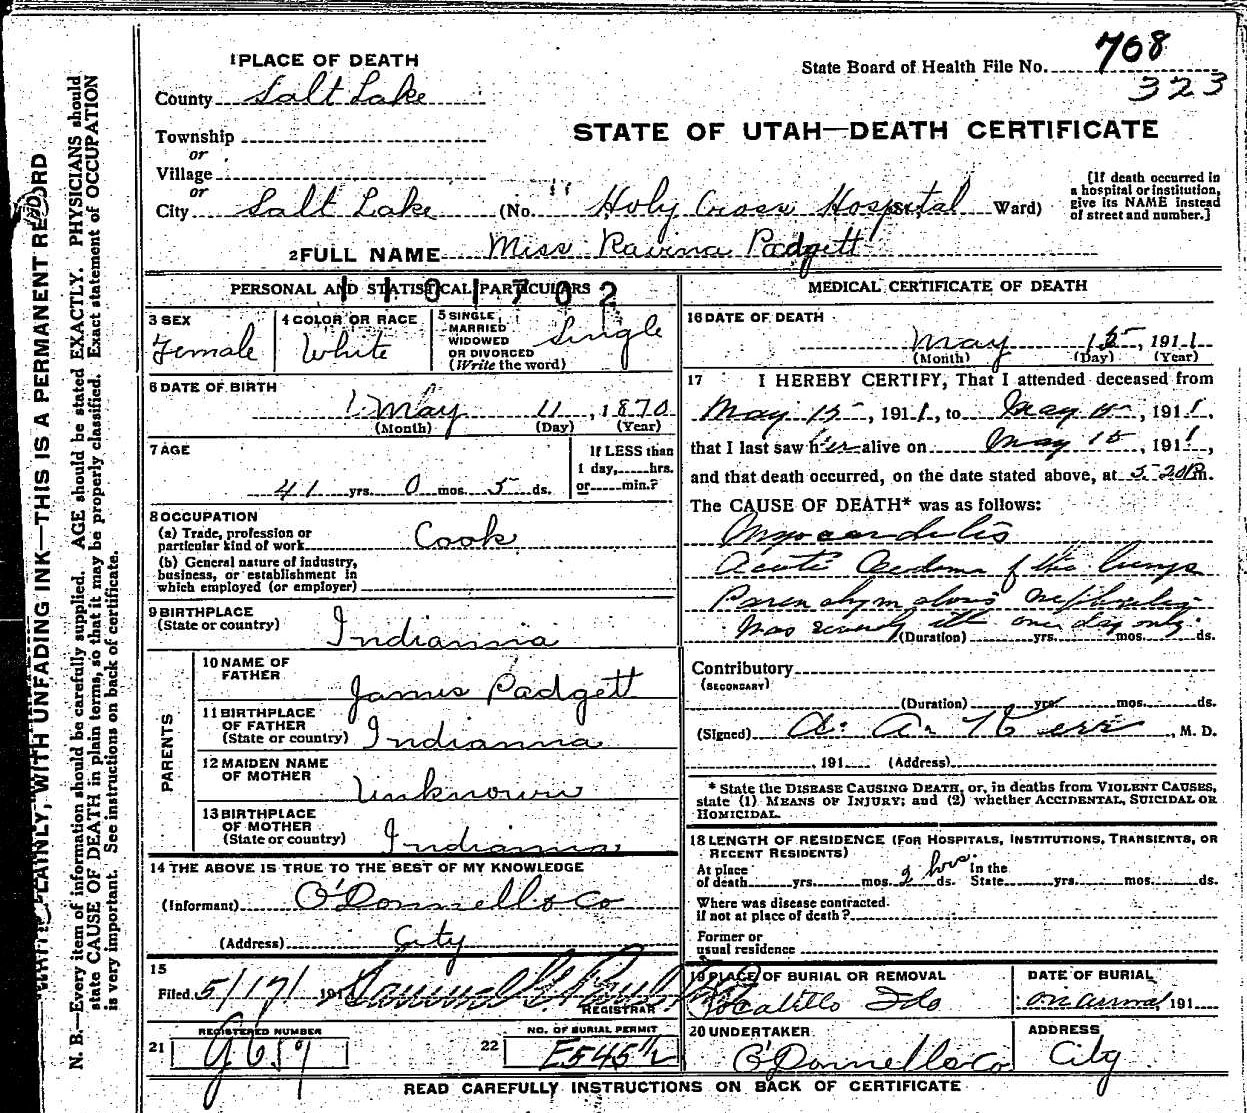 1 PLACE OF DEATH
State Board of Health File No. 708
323
County Salt Lake
STATE OF UTAH—DEATH CERTIFICATE
Township
or
Village
or
City Salt Lake (No. Holy Cross Hospital St. Ward)
[If death occurred in a hospital or institution, give its NAME instead of street and number.]
2 FULL NAME Miss Ravina Padgett
1101702
PERSONAL AND STATISTICAL PARTICULARS
3 SEX Female
4 COLOR OR RACE White
5 SINGLE, MARRIED WIDOWED OR DIVORCED (Write the word) Single
6 DATE OF BIRTH
May 11, 1870
(Month) (Day) (Year)
7 AGE
41 yrs. 0 mos. 5 ds.
If LESS than
1 day, hrs.
or min.?
8 OCCUPATION
(a) Trade, profession or
particular kind of work Cook
(b) General nature of industry,
business, or establishment in
which employed (or employer)
9 BIRTHPLACE
(State or country) Indianna
PARENTS
10 NAME OF
FATHER James Padgett
11 BIRTHPLACE
OF FATHER
(State or country) Indianna
12 MAIDEN NAME
OF MOTHER Unknown
13 BIRTHPLACE
OF MOTHER
(State or country) Indianna
14 THE ABOVE IS TRUE TO THE BEST OF MY KNOWLEDGE
(Informant) O'Donnell & Co
(Address) City
15
Filed 5/17/ 191
REGISTRAR
21 REGISTERED NUMBER
22 NO. OF BURIAL PERMIT
E5451/2
MEDICAL CERTIFICATE OF DEATH
16 DATE OF DEATH
May 15, 1911
(Month) (Day) (Year)
17 I HEREBY CERTIFY, That I attended deceased from
May 15, 1911, to May 15, 1911,
that I last saw her alive on May 15, 1911,
and that death occurred, on the date stated above, at 5-20 P.m.
The CAUSE OF DEATH* was as follows:
Myocarditis
Acute Oedema of the lungs
Parenchymatous nephritis
Was severely ill one day only.
(Duration) yrs. mos. ds.
Contributory
(SECONDARY)
(Duration) yrs. mos. ds.
(Signed) A. A. Kerr, M. D.
, 191 (Address)
* State the DISEASE CAUSING DEATH, or, in deaths from VIOLENT CAUSES,
state (1) MEANS OF INJURY; and (2) whether ACCIDENTAL, SUICIDAL OR
HOMICIDAL.
18 LENGTH OF RESIDENCE (FOR HOSPITALS, INSTITUTIONS, TRANSIENTS, OR
RECENT RESIDENTS)
At place
of death yrs. mos. 2 hrs. ds. In the State yrs. mos. ds.
Where was disease contracted
if not at place of death?
Former or
usual residence
19 PLACE OF BURIAL OR REMOVAL
Pocatello Ido
DATE OF BURIAL
on arrival, 191
20 UNDERTAKER
O'Donnell & Co
ADDRESS
City
READ CAREFULLY INSTRUCTIONS ON BACK OF CERTIFICATE
PLAINLY, WITH UNFADING INK—THIS IS A PERMANENT RECORD
N. B.—Every item of information should be carefully supplied. AGE should be stated EXACTLY. PHYSICIANS should
state CAUSE OF DEATH in plain terms, so that it may be properly classified. Exact statement of OCCUPATION
is very important. See instructions on back of certificate.